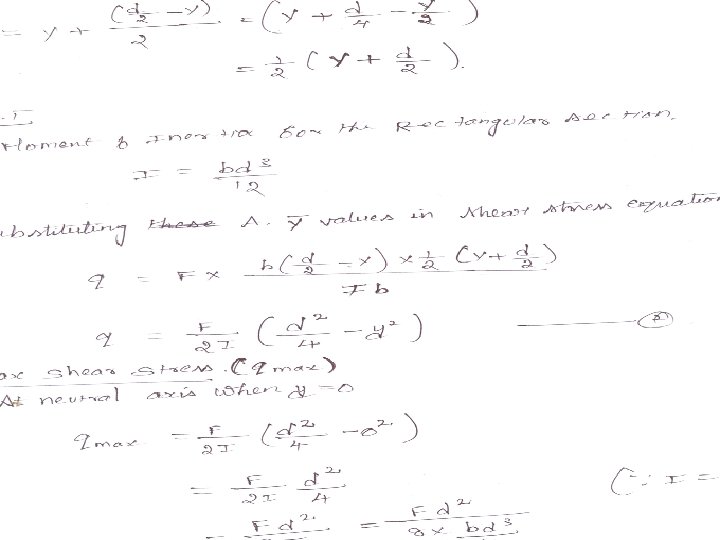 = y + (d/2 - y)/2 = (y + d/4 - y/2)
= 1/2 (y + d/2).
I
Moment of Inertia for the Rectangular section.
I = bd³/12
ubstituting these A. ȳ values in shear stress equation
q = F × b(d/2 - y) × 1/2 (y + d/2) / Ib
q = F/2I (d²/4 - y²) ——— (2)
ax shear stress. (q max)
At neutral axis when y = 0
q max = F/2I (d²/4 - 0²)
= F/2I d²/4 (∵ I =
= Fd² = Fd²/8 × bd³